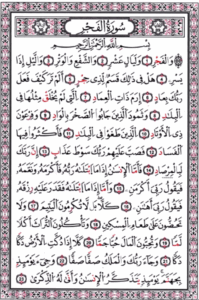 سُورَةُ الْفَجْرِ
بِسْمِ اللَّهِ الرَّحْمَٰنِ الرَّحِيمِ
وَالْفَجْرِ وَلَيَالٍ عَشْرٍ وَالشَّفْعِ وَالْوَتْرِ وَاللَّيْلِ إِذَا
يَسْرِ هَلْ فِي ذَٰلِكَ قَسَمٌ لِذِي حِجْرٍ أَلَمْ تَرَ كَيْفَ فَعَلَ
رَبُّكَ بِعَادٍ إِرَمَ ذَاتِ الْعِمَادِ الَّتِي لَمْ يُخْلَقْ مِثْلُهَا فِي
الْبِلَادِ وَثَمُودَ الَّذِينَ جَابُوا الصَّخْرَ بِالْوَادِ وَفِرْعَوْنَ
ذِي الْأَوْتَادِ الَّذِينَ طَغَوْا فِي الْبِلَادِ فَأَكْثَرُوا فِيهَا
الْفَسَادَ فَصَبَّ عَلَيْهِمْ رَبُّكَ سَوْطَ عَذَابٍ إِنَّ رَبَّكَ
لَبِالْمِرْصَادِ فَأَمَّا الْإِنْسَانُ إِذَا مَا ابْتَلَاهُ رَبُّهُ فَأَكْرَمَهُ وَنَعَّمَهُ
فَيَقُولُ رَبِّي أَكْرَمَنِ وَأَمَّا إِذَا مَا ابْتَلَاهُ فَقَدَرَ عَلَيْهِ رِزْقَهُ
فَيَقُولُ رَبِّي أَهَانَنِ كَلَّا بَلْ لَا تُكْرِمُونَ الْيَتِيمَ وَلَا
تَحَاضُّونَ عَلَىٰ طَعَامِ الْمِسْكِينِ وَتَأْكُلُونَ التُّرَاثَ أَكْلًا
لَمًّا وَتُحِبُّونَ الْمَالَ حُبًّا جَمًّا كَلَّا إِذَا دُكَّتِ الْأَرْضُ دَكًّا
دَكًّا وَجَاءَ رَبُّكَ وَالْمَلَكُ صَفًّا صَفًّا وَجِيءَ يَوْمَئِذٍ
بِجَهَنَّمَ يَوْمَئِذٍ يَتَذَكَّرُ الْإِنْسَانُ وَأَنَّىٰ لَهُ الذِّكْرَىٰ